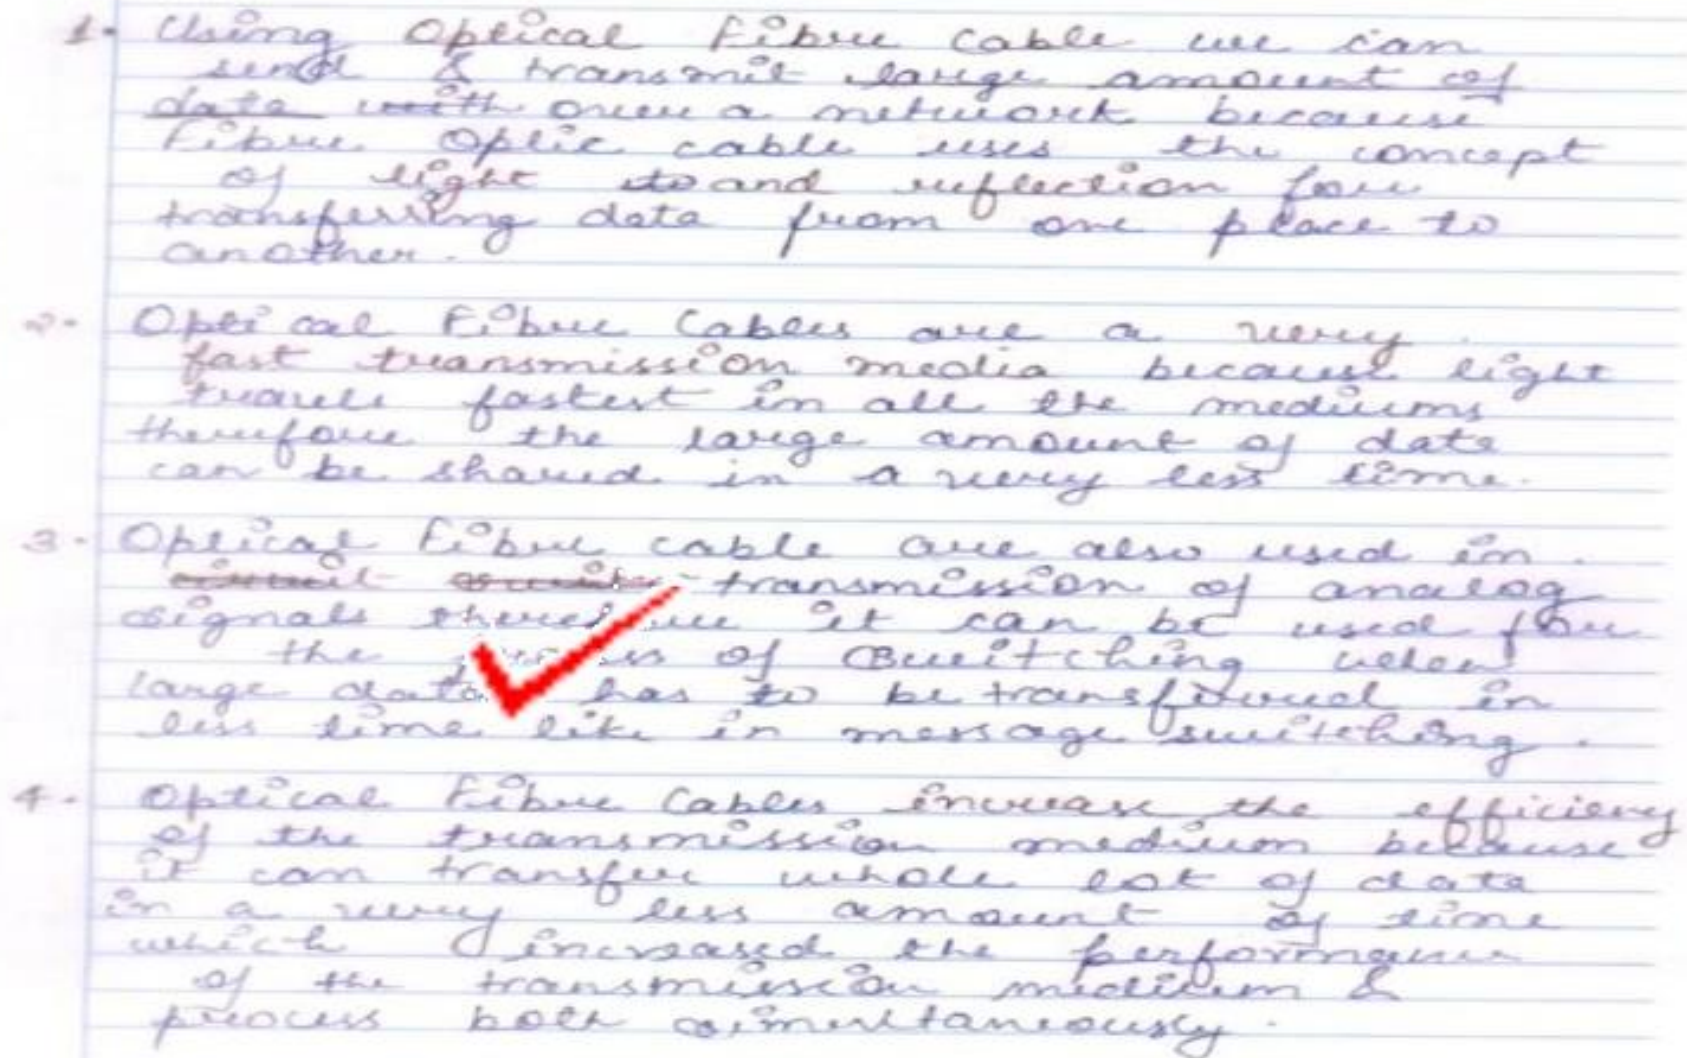 1. Using Optical Fibre Cable we can
send & transmit large amount of
data with over a network because
Fibre Optic cable uses the concept
of light to and reflection for
transferring data from one place to
another.
2. Optical Fibre Cables are a very
fast transmission media because light
travels fastest in all the mediums
therefore the large amount of data
can be shared in a very less time.
3. Optical Fibre cable are also used in
transmission of analog
signals it can be used for
the of switching when
large data has to be transferred in
less time like in message switching.
4. Optical Fibre Cables increase the efficiency
of the transmission medium because
it can transfer whole lot of data
in a very less amount of time
which increased the performance
of the transmission medium &
process both simultaneously.